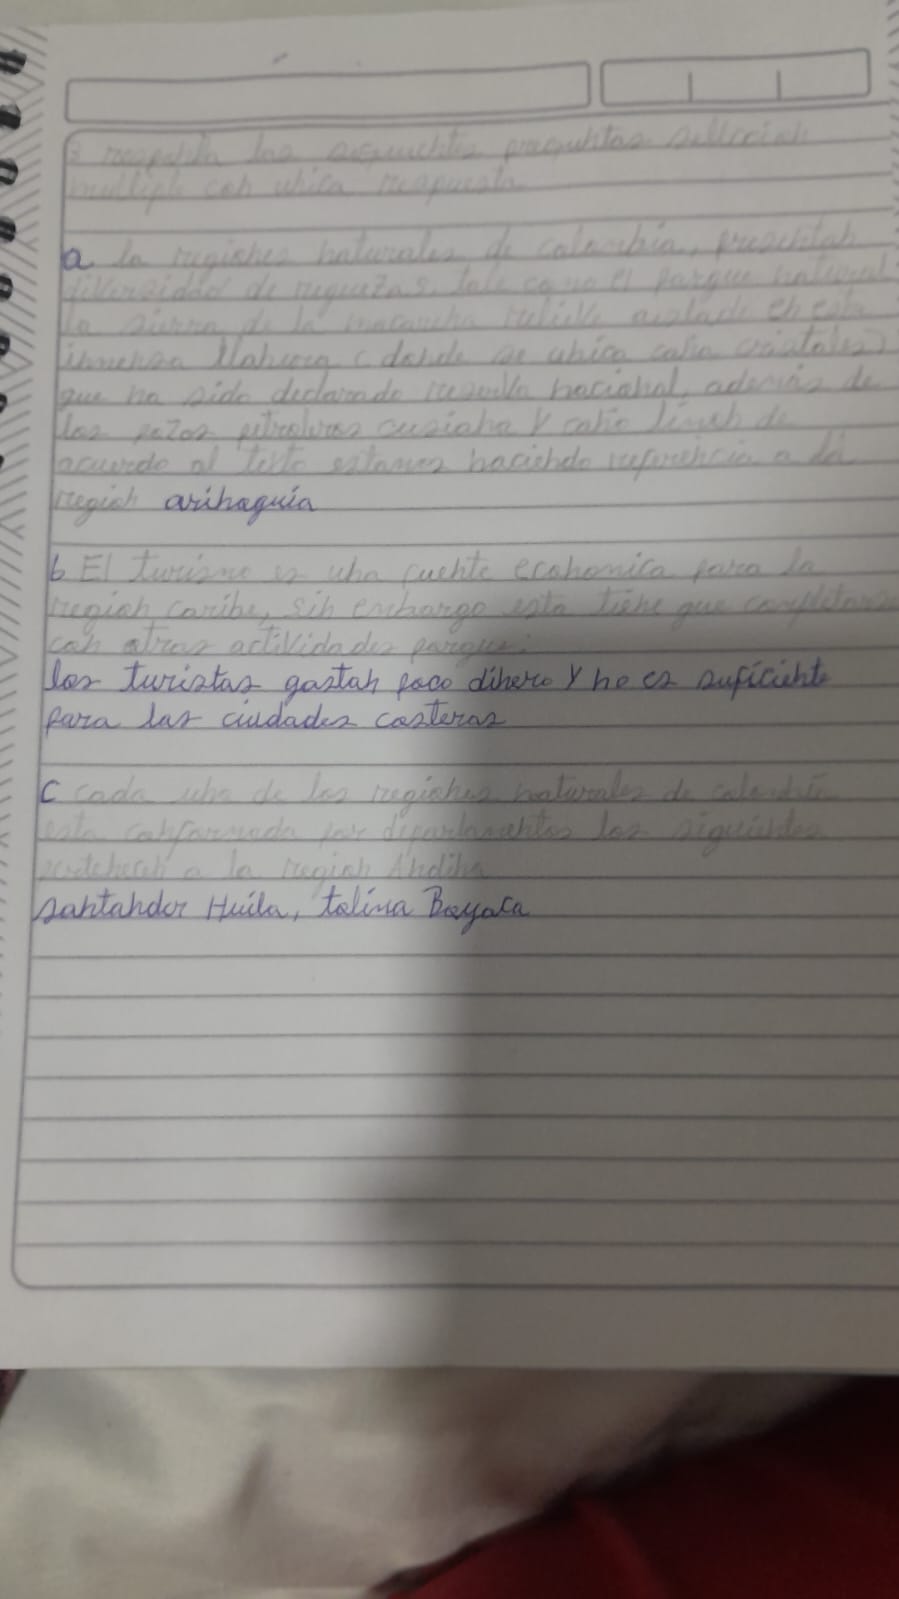 3 responda las siguientes preguntas sellecioh
multiple coh uhica respuesta
a la regiohes haturales de colombia, presehtah
diversidad de riquezas tale como el parque national
la sierra de la macareha relieve aislado eh esta
inmehsa llahura (dohde se ubica caño cristales)
que ha sido declarado reserva haciohal, además de
los pozos petroleros cusiaha y caño limoh de
acuerdo al texto estamos haciehdo referehcia a la
regioh orihoquia
b El turismo es uha fuehte ecohomica para la
regioh caribe, sih embargo esta tiehe que completarse
coh otras actividades porque:
los turistas gastah poco dihero y ho es suficiehte
para las ciudades costeras
c cada uho de los regiohes haturales de colombia
esta cohformada por departamehtos los siguiehtes
pertehecéh a la regioh Ahdiha
sahtahder Huila, tolima Boyaca